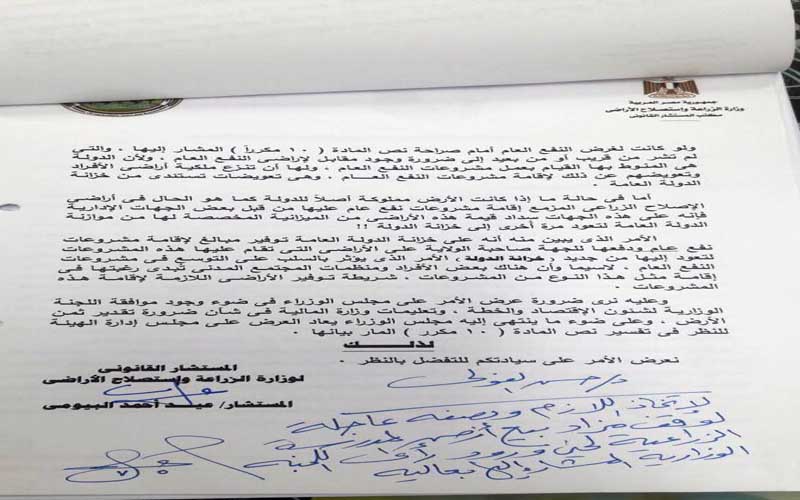 جمهورية مصر العربية
وزارة الزراعة وإستصلاح الأراضى
مكتب المستشار القانونى
ولو كانت لغرض النفع العام أمام صراحة نص المادة ( ١٠ مكرراً ) المشار إليها ، والتي
لم تشر من قريب أو من بعيد إلى ضرورة وجود مقابل لإراضى النفع العام ، ولأن الدولة
هى المنوط بها القيام بعمل مشروعات النفع العام . ولها أن تنزع ملكية أراضى الأفراد
وتعويضهم عن ذلك لإقامة مشروعات النفع العام ، وهى تعويضات تستندى من خزانة
الدولة العامة .
أما فى حالة ما إذا كانت الأرض مملوكة أصلاً للدولة كما هو الحال فى أراضي
الإصلاح الزراعى المزمع إقامة مشروعات نفع عام عليها من قبل بعض الجهات الإدارية
فإنه على هذه الجهات سداد قيمة هذه الأراضى من الميزانية المخصصة لها من موازنة
الدولة العامة لتعود مرة أخرى إلى خزانة الدولة !!
الأمر الذى يبين منه أنه على خزانة الدولة العامة توفير مبالغ لإقامة مشروعات
نفع عام ودفعها للجهة صاحبة الولاية على الأراضى التى تقام عليها هذه المشروعات
لتعود إليها من جديد ( خزانة الدولة ) الأمر الذى يؤثر بالسلب على التوسع فى مشروعات
النفع العام . لاسيما وأن هناك بعض الأفراد ومنظمات المجتمع المدنى تبدى رغبتها فى
إقامة مثل هذا النوع من المشروعات ، شريطة توفير الأراضى اللازمة لإقامة هذه
المشروعات .
وعليه نرى ضرورة عرض الأمر على مجلس الوزراء فى ضوء وجود موافقة اللجنة
الوزارية لشئون الإقتصاد والخطة ، وتعليمات وزارة المالية فى شأن ضرورة تقدير ثمن
الأرض . وعلى ضوء ما ينتهى إليه مجلس الوزراء يعاد العرض على مجلس إدارة الهيئة
للنظر فى تفسير نص المادة ( ١٠ مكرر ) المار بيانها .
لذلك
نعرض الأمر على سيادتكم للتفضل بالنظر .
المستشار القانونى
لوزارة الزراعة وإستصلاح الأراضى
المستشار/ عيد أحمد البيومى
لاتخاذ اللازم وبصفه عاجلة
لوقف مزاد بيع أرض المدرسة
الزراعية لحين ورود رأى اللجنة
الوزارية المشار إليها بعاليه